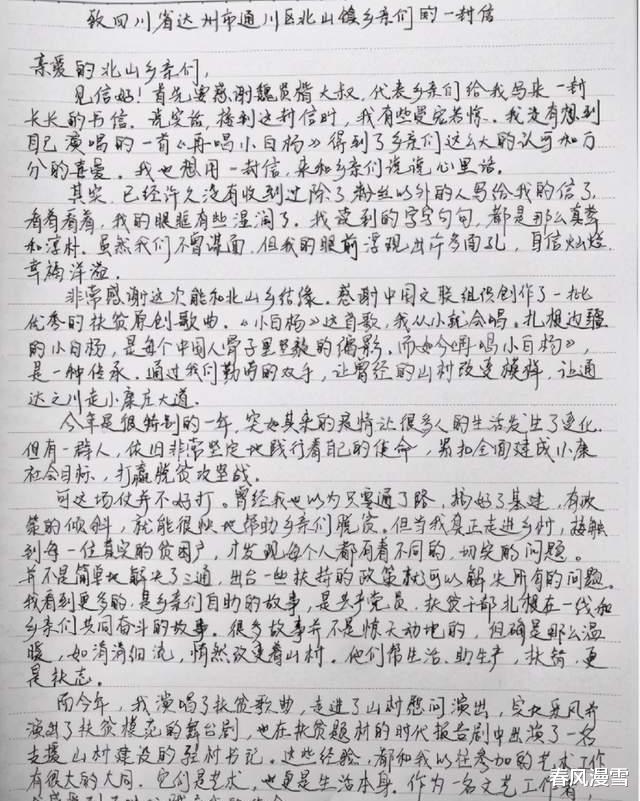 致四川省达州市通川区北山镇乡亲们的一封信
亲爱的北山乡亲们，
见信好！首先要感谢魏贤楷大叔，代表乡亲们给我写来一封
长长的书信。说实话，接到这封信时，我有些受宠若惊。我没有想到
自己演唱的一首《再唱小白杨》得到了乡亲们这么大的认可和万
分的喜爱。我也想用一封信，来和乡亲们说说心里话。
其实，已经许久没有收到过除了粉丝以外的人写给我的信了，
看着看着，我的眼眶有些湿润了。我读到的字字句句，都是那么真挚
和淳朴。虽然我们不曾谋面，但我的眼前浮现出许多面孔，自信灿烂，
幸福洋溢。
非常感谢这次能和北山乡结缘。感谢中国文联组织创作了一批
优秀的扶贫原创歌曲。《小白杨》这首歌，我从小就会唱。扎根边疆
的小白杨，是每个中国人骨子里坚毅的缩影。而如今《再唱小白杨》，
是一种传承。通过我们勤劳的双手，让曾经的山村改变模样，让通
达之川走小康庄大道。
今年是很特别的一年，突如其来的疫情让很多人的生活发生了变化，
但有一群人，依旧非常坚定地践行着自己的使命，紧扣全面建成小康
社会目标，打赢脱贫攻坚战。
可这场仗并不好打。曾经我也以为只要通了路，搞好了基建，有政
策的倾斜，就能很快地帮助乡亲们脱贫。但当我真正走进乡村，接触
到每一位真实的贫困户，才发现每个人都有着不同的，切实的问题。
并不是简单地解决了三通，出台一些扶持的政策就可以解决所有的问题。
我看到更多的，是乡亲们自助的故事，是共产党员，扶贫干部扎根在一线和
乡亲们共同奋斗的故事。很多故事并不是惊天动地的，但确是那么温
暖，如涓涓细流，悄然改变着山村。他们帮生活、助生产，扶智，更
是扶志。
而今年，我演唱了扶贫歌曲，走进了山村慰问演出，实大乐风并
演出了扶贫模范的舞台剧，也在扶贫题材的时代报告剧中出演了一名
支援山村建设的驻村书记。这些经验，都和我以往参加的艺术工作
有很大的不同。它们是艺术，也更是生活本身。作为一名文艺工作者
春风漫雪